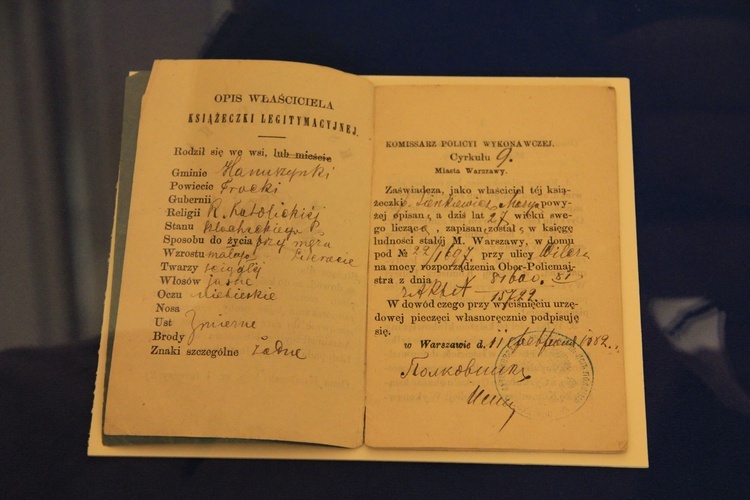 OPIS WŁAŚCICIELA
KSIĄŻECZKI LEGITYMACYJNEJ.
Rodził się we wsi, lub mieście
Gminie Hanuszynki
Powiecie Trocki
Gubernii
Religii R. Katolickiej
Stanu szlacheckiego
Sposobu do życia przy mężu
Literacie
Wzrostu małego
Twarzy ściągłej
Włosów jasne
Oczu niebieskie
Nosa
Ust Zmierne
Brody
Znaki szczególne Żadne
KOMISSARZ POLICYI WYKONAWCZEJ.
Cyrkułu 9.
Miasta Warszawy.
Zaświadcza, jako właściciel téj ksią-
żeczki Sienkiewicz powy-
żej opisana, a dziś lat 27 wieku swe-
go licząca, zapisana została w księgę
ludności stałéj M. Warszawy, w domu
pod № 22/1607 przy ulicy
na mocy rozporządzenia Ober-Policmaj-
stra z dnia 81600
15722
W dowód czego przy wyciśnięciu urzę-
dowej pieczęci własnoręcznie podpisuję
się.
w Warszawie d. 11 1882
Полковникъ